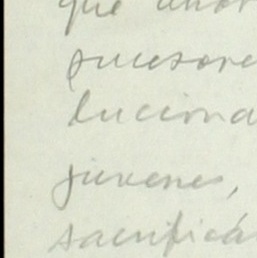 que
sucesore
luciona
jóvenes,
sacrificá